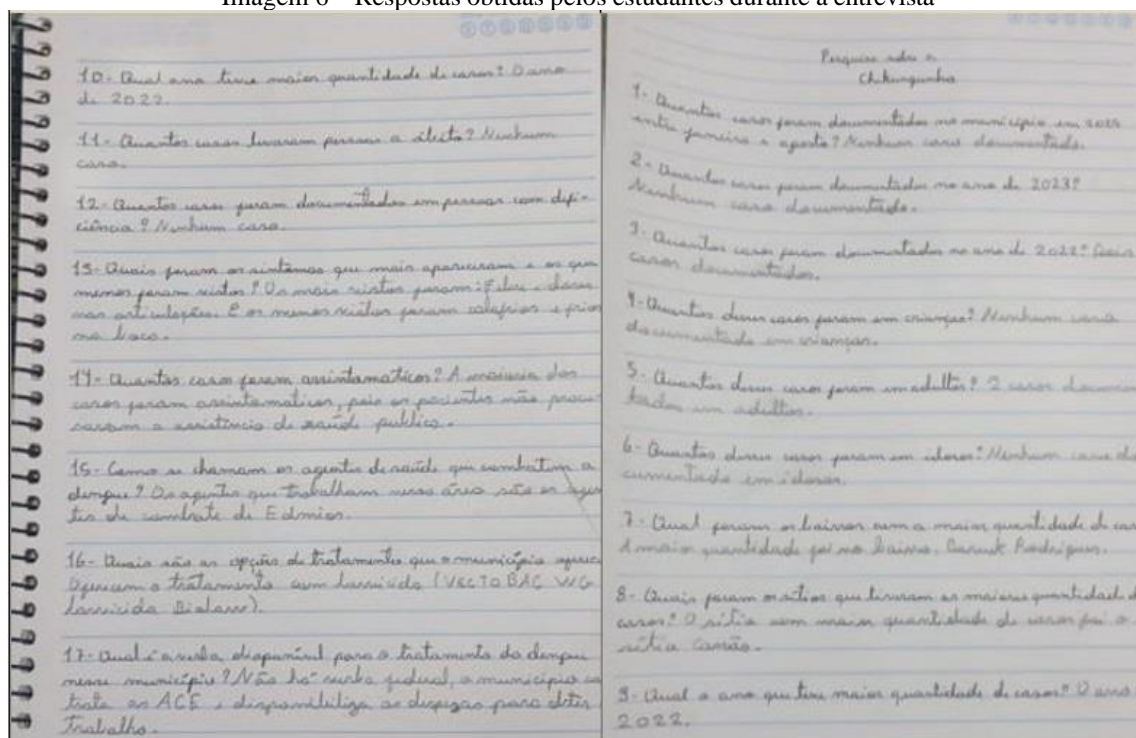 Imagem 6 – Respostas obtidas pelos estudantes durante a entrevista
10- Qual ano teve maior quantidade de casos? O ano
de 2022.
11- Quantos casos levaram pessoas a óbito? Nenhum
caso.
12- Quantos casos foram documentados em pessoas com defi-
ciência? Nenhum caso.
13- Quais foram os sintomas que mais apareceram e os que
menos foram vistos? Os mais vistos foram: Febre e dores
nas articulações. E os menos vistos foram calafrios e frios
na boca.
14- Quantos casos foram assintomaticos? A maioria dos
casos foram assintomaticos, pois os pacientes não procu-
raram a assistência de saúde publica.
15- Como se chamam os agentes de saúde que combatem a
dengue? Os agentes que trabalham nessa área são os agen
tes de combate de Edmias.
16- Quais são as opções de tratamento que o município oferece
Oferecem o tratamento com larvicida (VECTOBAC WG
larvicida Biolarv).
17- Qual é a verba disponível para o tratamento da dengue
nesse município? Não há verba federal, o município co
trata os ACE e disponibiliza as despezas para obter
trabalho.
Pesquisa sobre a
Chikungunha
1- Quantos casos foram documentados no município em 2024
entre janeiro e agosto? Nenhum caso documentado.
2- Quantos casos foram documentados no ano de 2023?
Nenhum caso documentado.
3- Quantos casos foram documentados no ano de 2022? Dois
casos documentados.
4- Quantos desses casos foram em crianças? Nenhum caso
documentado em crianças.
5- Quantos desses casos foram em adultos? 2 casos documen
tados em adultos.
6- Quantos desses casos foram em idosos? Nenhum caso do
cumentado em idosos.
7- Qual foram os bairros com a maior quantidade de cas
A maior quantidade foi no bairro, Rodrigues.
8- Quais foram os sítios que tiveram as maiores quantidade d
casos? O sítio com maior quantidade de casos foi o
sítio
9- Qual o ano que teve maior quantidade de casos? O ano
2022.